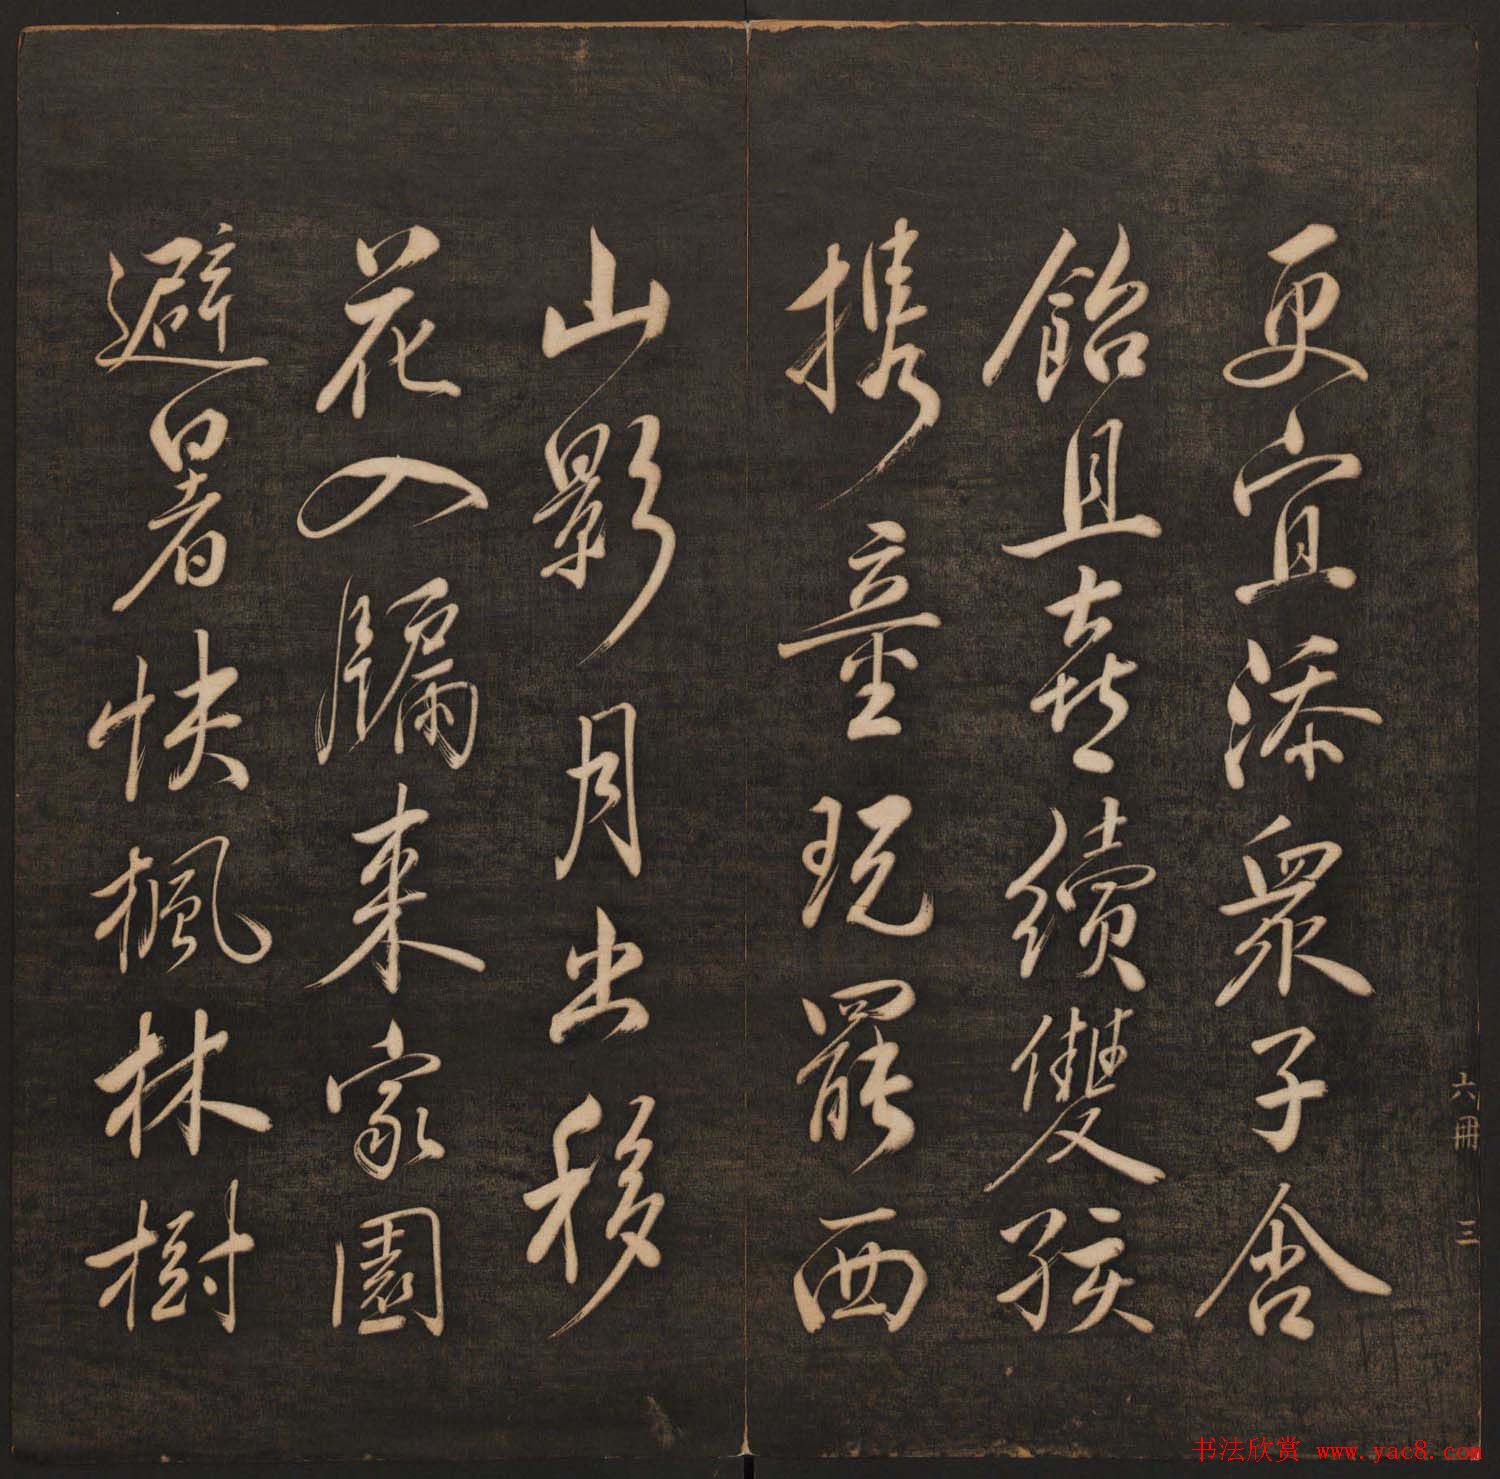 更宜添众子舍
飴且喜續雙孩
携童玩罷西
山影月出移
花入牖來家園
避暑快楓林樹
六冊 三
书法欣赏 www.yac8.com